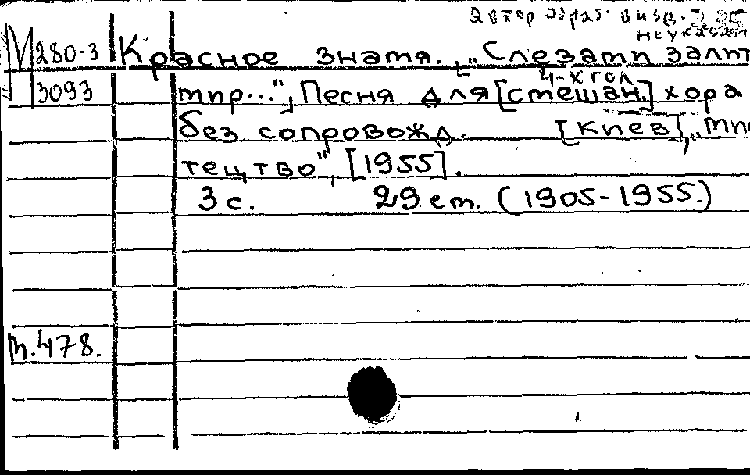 автор обраб. в изд. не указан
М 280-3 Красное знамя. „Слезами залит
3093 мир...", Песня для [смешан.] 4-хгол хора
без сопровожд. [Киев], „Мис
тецтво", [1955].
3 с. 29 см. (1905-1955.)
т.478.